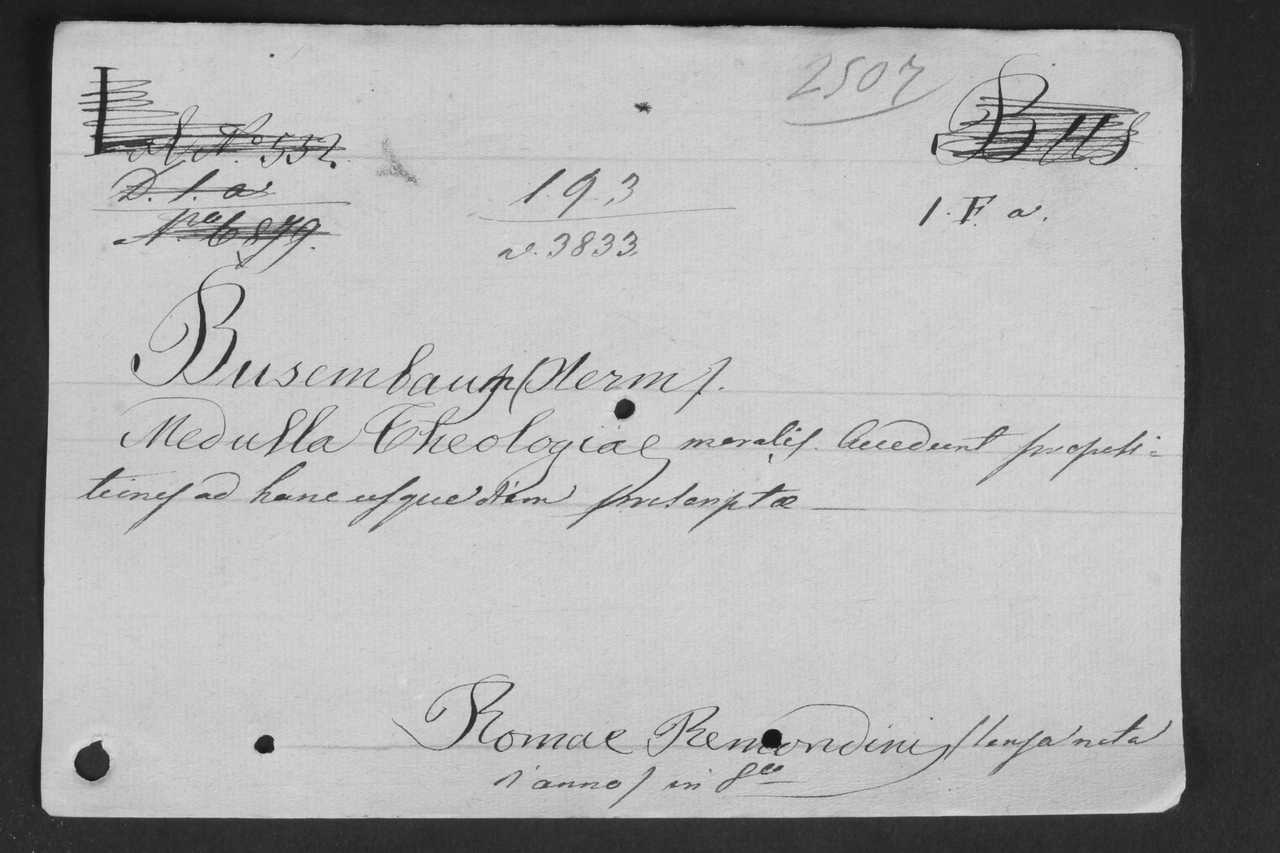 2507
N.º 552.
D. 1. a.
N.ro 6879.
1. 9. 3
a. 3833.
BUS
1. F. a.
Busembaum (Herm).
Medulla Theologiae moralis. Accedunt propositi=
tiones ad hanc usque diem proscriptae
Romae Remondini (senza nota
d'anno) in 8vo